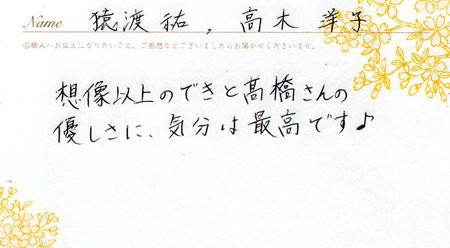 Name 猿渡祐, 高木 洋子
◎職人へお伝えになりたいこと、ご感想などございましたらお聞かせくださいませ。
想像以上のできと髙橋さんの
優しさに、気分は最高です♪